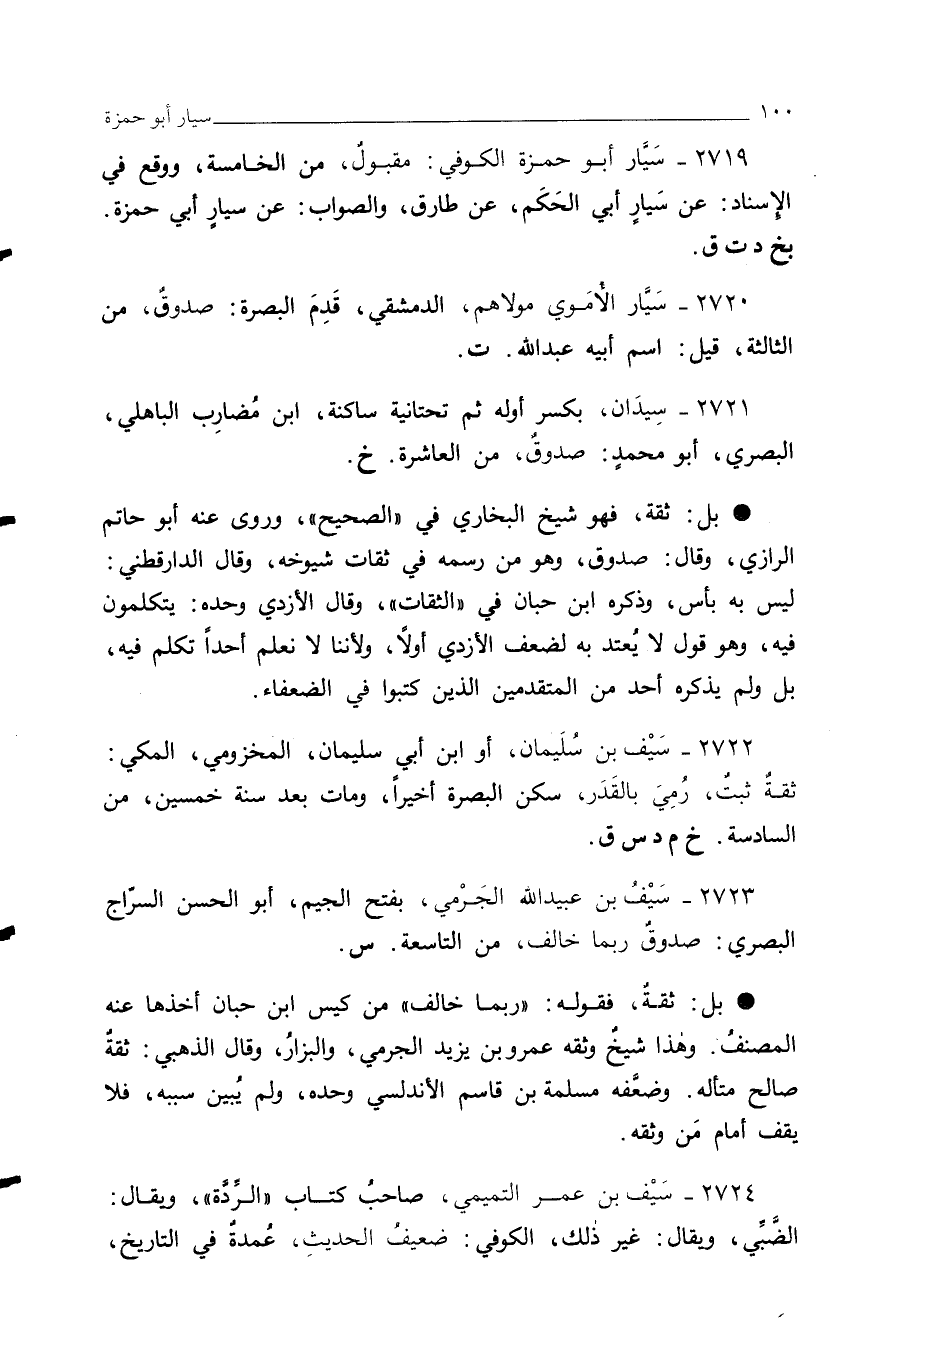 ١٠٠ سيار أبو حمزة
٢٧١٩ ـ سَيَّار أبو حمزة الكوفي: مقبولٌ، من الخامسة، ووقع في
الإِسناد: عن سَيارٍ أبي الحَكَم، عن طارق، والصواب: عن سيارٍ أبي حمزة.
بخ د ت ق.
٢٧٢٠ ـ سَيَّار الأُمَوي مولاهم، الدمشقي، قَدِمَ البصرة: صدوقٌ، من
الثالثة، قيل: اسم أبيه عبدالله. ت.
٢٧٢١ ـ سِيدَان، بكسر أوله ثم تحتانية ساكنة، ابن مُضارِب الباهلي،
البصري، أبو محمدٍ: صدوقٌ، من العاشرة. خ.
● بل: ثقة، فهو شيخ البخاري في «الصحيح»، وروى عنه أبو حاتم
الرازي، وقال: صدوق، وهو من رسمه في ثقات شيوخه، وقال الدارقطني:
ليس به بأس، وذكره ابن حبان في «الثقات»، وقال الأزدي وحده: يتكلمون
فيه، وهو قول لا يُعتد به لضعف الأزدي أولًا، ولأننا لا نعلم أحداً تكلم فيه،
بل ولم يذكره أحد من المتقدمين الذين كتبوا في الضعفاء.
٢٧٢٢ ـ سَيْف بن سُلَيمان، أو ابن أبي سليمان، المخزومي، المكي:
ثقةٌ ثبتٌ، رُمِيَ بالقَدَر، سكن البصرة أخيراً، ومات بعد سنة خمسين، من
السادسة. خ م د س ق.
٢٧٢٣ ـ سَيْفُ بن عبيدالله الجَرْمي، بفتح الجيم، أبو الحسن السرّاج
البصري: صدوقٌ ربما خالف، من التاسعة. س.
● بل: ثقةٌ، فقوله: «ربما خالف» من كيس ابن حبان أخذها عنه
المصنفُ. وهٰذا شيخٌ وثقه عمرو بن يزيد الجرمي، والبزارُ، وقال الذهبي: ثقةٌ
صالح متأله. وضعَّفه مسلمة بن قاسم الأندلسي وحده، ولم يُبين سببه، فلا
يقف أمام مَن وثقه.
٢٧٢٤ ـ سَيْف بن عمر التميمي، صاحبُ كتاب «الرِّدَّة»، ويقال:
الضَّبِّي، ويقال: غير ذٰلك، الكوفي: ضعيفُ الحديثِ، عُمدةٌ في التاريخ،